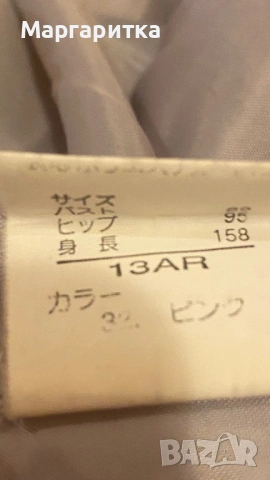 Маргаритка
サイズ
バスト
ヒップ 95
身長 158
13AR
カラー
32 ピンク
BAZAR